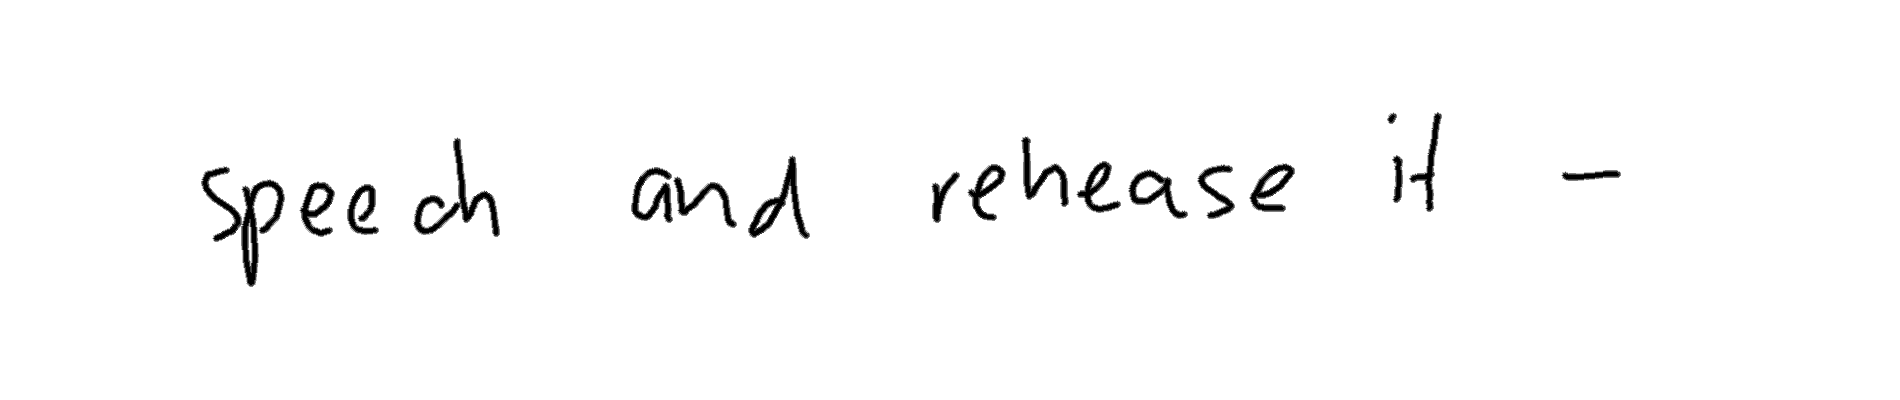 speech and rehease it -